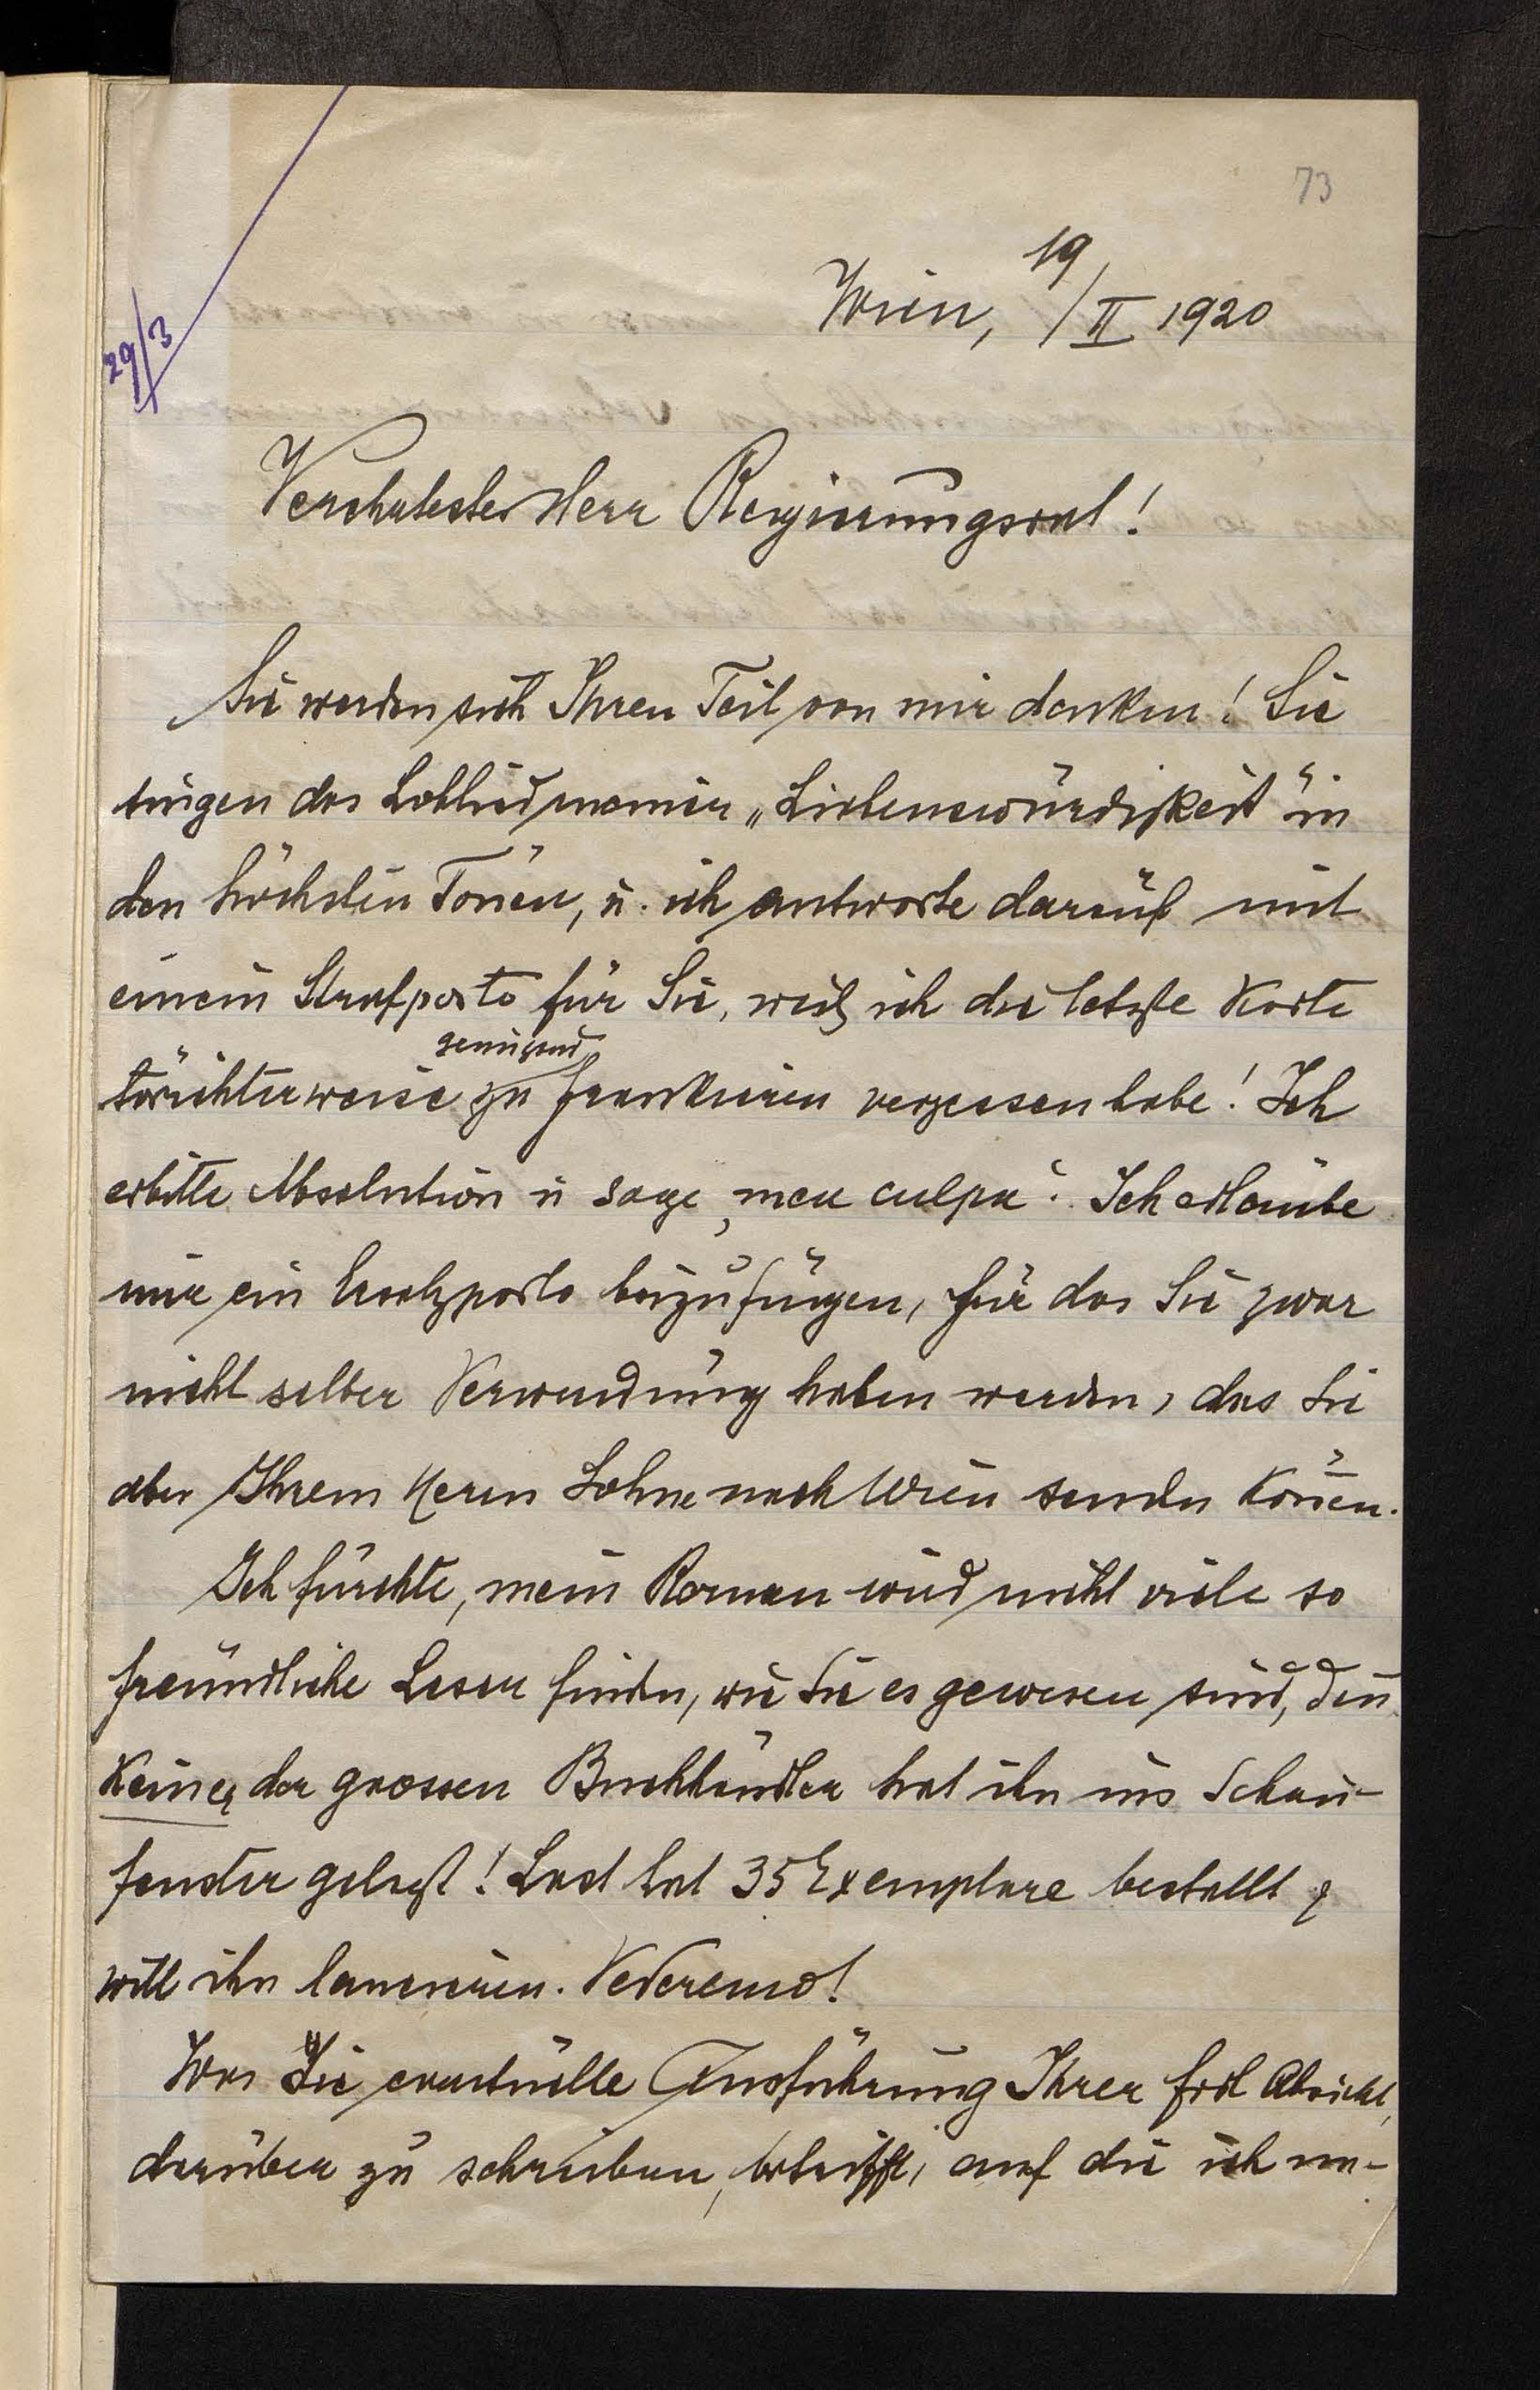 73
29/3
19
Wien, / II 1920
Verehrtester Herr Regierungsrat!
Sie werden sich Ihren Teil von mir denken! Sie
singen das Loblied meiner „Liebenswürdigkeit" in
den höchsten Tönen, u. ich antworte darauf mit
einem Strafporto für Sie, weil ich die letzte Karte
genügend
törichterweise zu frankieren vergessen habe! Ich
erbitte Absolution u sage „mea culpa". Ich erlaube
mir ein Ersatzporto beizufügen, für das Sie zwar
nicht selber Verwendung haben werden, das Sie
aber Ihrem Herrn Sohne nach Wien senden könen.
Ich fürchte, mein Roman wird nicht viele so
freundliche Leser finden, wie Sie es gewesen sind, den
keiner der grossen Buchhändler hat ihn ins Schau-
fenster gelegt! Last hat 35 Exemplare bestellt &
will ihn lancieren. Vederemo!
Was die eventuelle Ausführung Ihrer frdl Absicht,
darüber zu schreiben, betrifft, auf die ich mi-